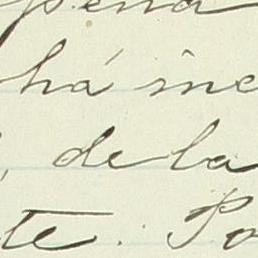 pena
há inc
, de la
te. Po